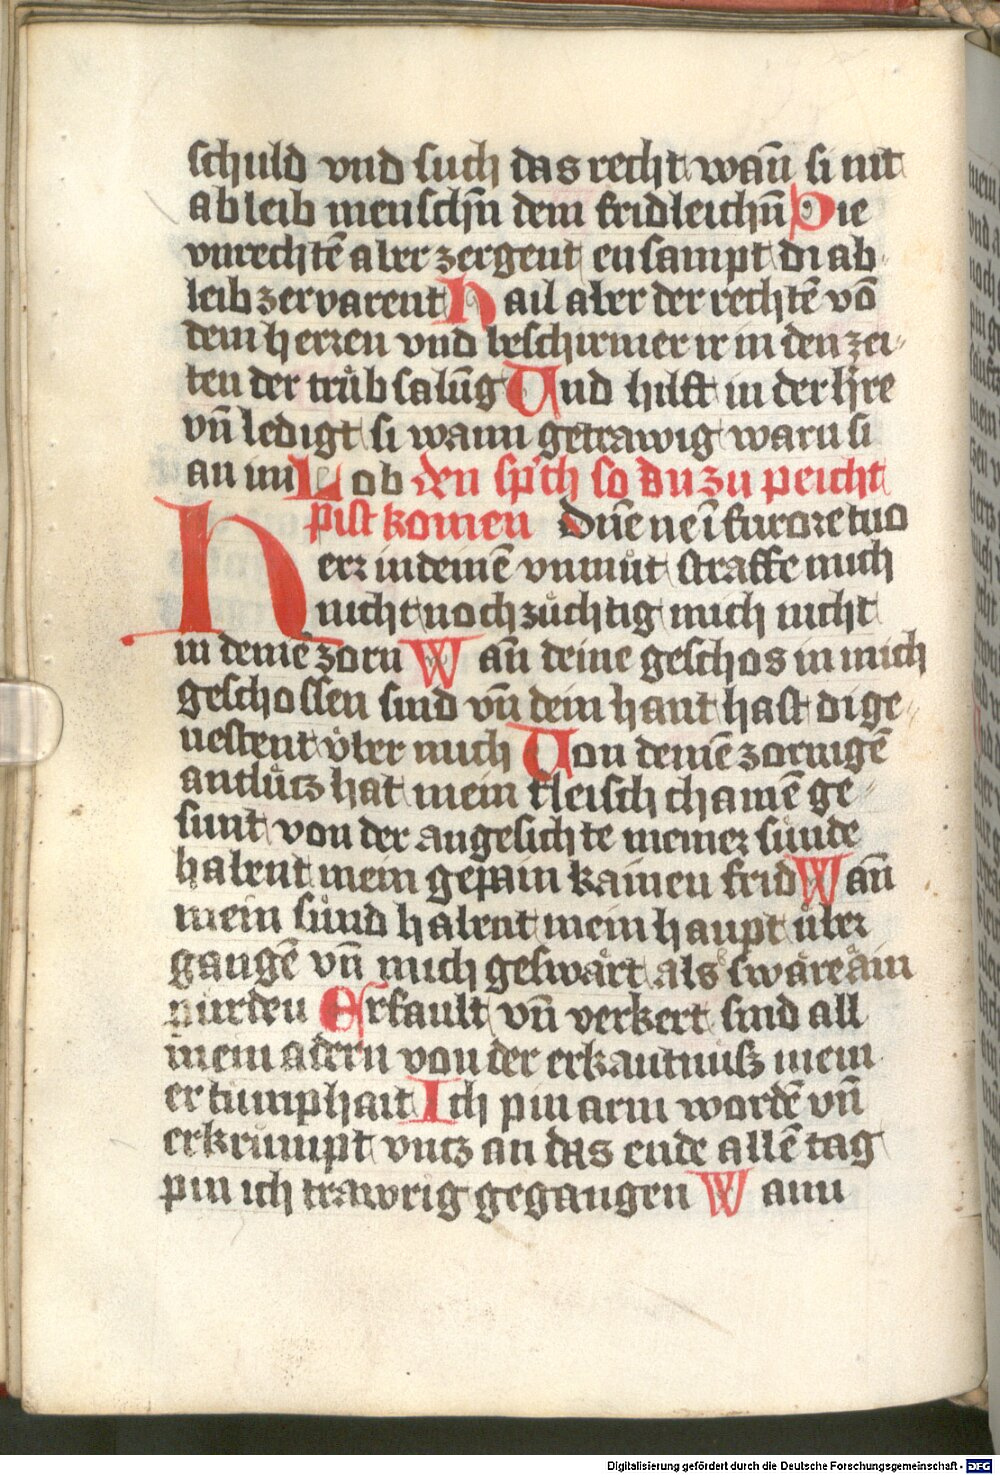 schuld vnd such das recht wañ si nit
ableib menschñ dem fridleichñ Die
vnrechtē aber zergent ensampt di ab
leib zervarent Hail aber der rechtē vō
dem herren vnd beschirmer ir in den zei-
ten der trůbsalūg Und hilft in der h're
vñ ledigt si wann getrawig warn si
an im Lob den sp'ch so du zu peicht
pist komen Dn̄e ne ī furore tuo
Herr in deinē vnmůt straffe mich
nicht noch zůchtig mich nicht
in deinē zorn Wañ deine geschos in mich
geschossen sind vñ dein hant hast di ge-
uestent v̊ber mich Uon deinē zornigē
antlůtz hat mein fleisch chainē ge-
sunt von der angesichte meiner sůnde
habent mein gepain kainen frid Wañ
mein sůnd habent mein haupt ůber
gangē vñ mich geswårt als swåre ain
purden Erfault vñ verkert sind all
mein adern von der erkantnuß mein
er tumphait Ich pin arm wordē vñ
erkrůmpt vntz an das ende allē tag
pin ich trawrig gegangen Wann
Digitalisierung gefördert durch die Deutsche Forschungsgemeinschaft - DFG